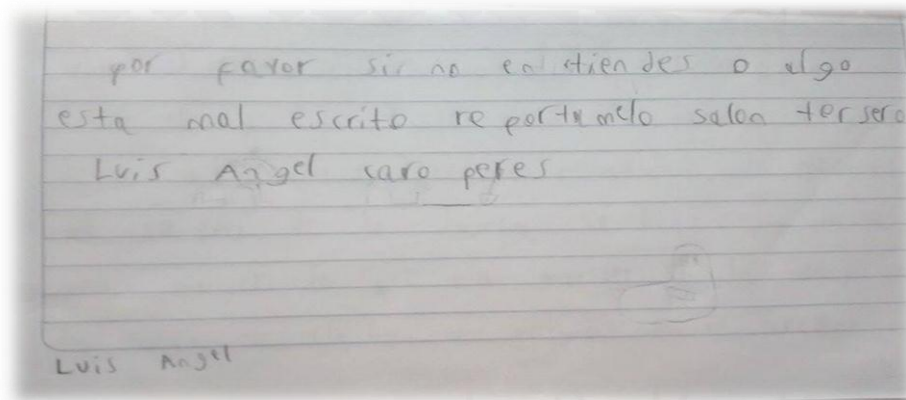 por favor sir no entiendes o algo
esta mal escrito reportamelo salon tersero
Luis Angel caro peres
Luis Angel